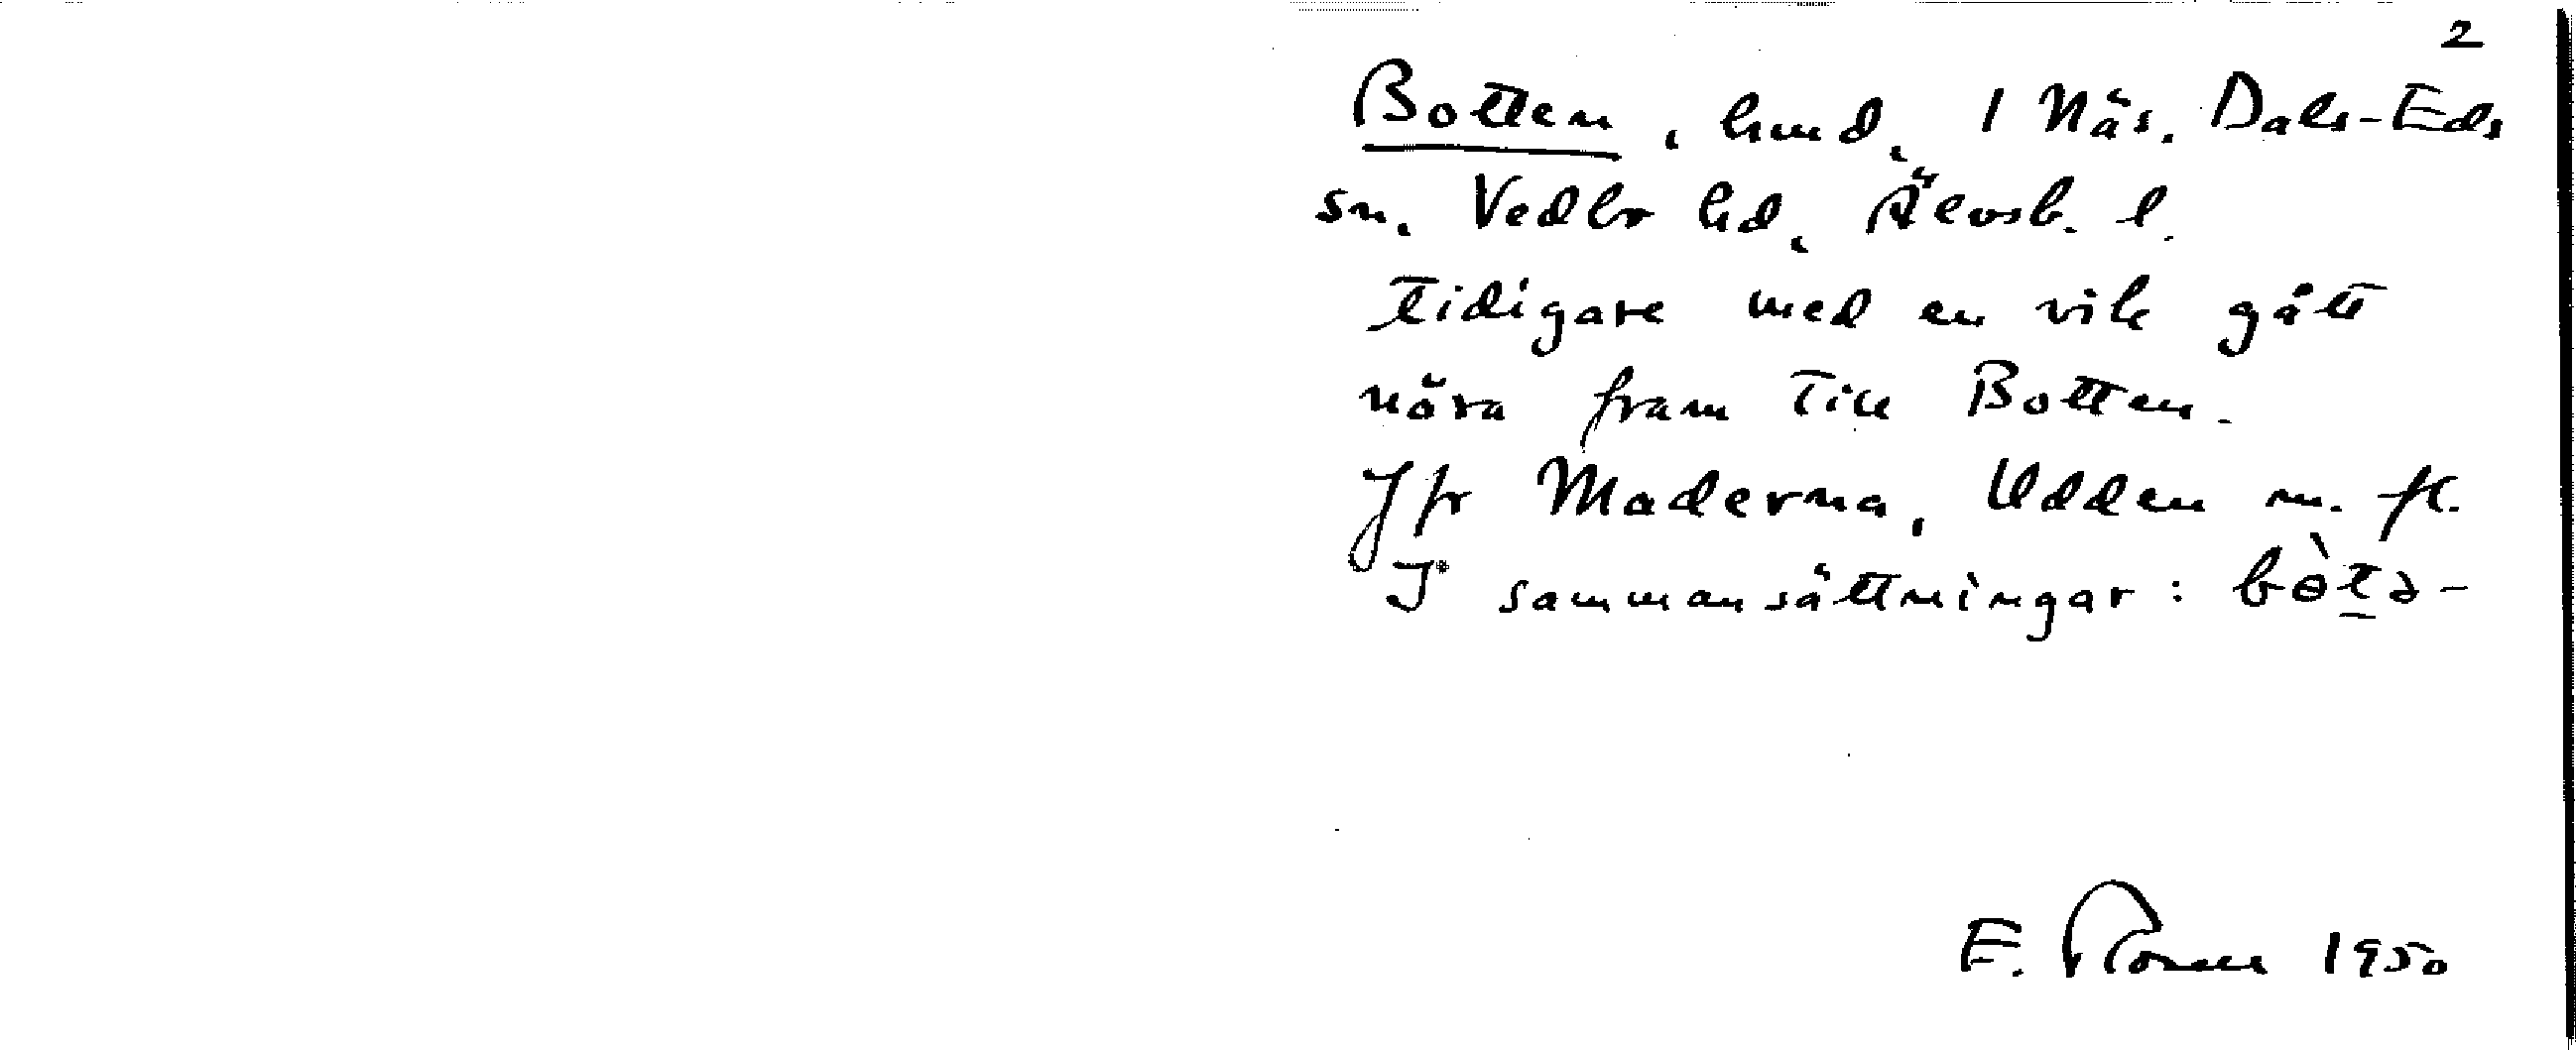 2
Botten, hmd, 1 Näs. Dals-Eds
sn, Vedbo hd, Älvsb. l.
tidigare med en vik gått
nära fram till Botten.
Jfr Maderna, Udden m. fl.
I sammansättningar: bòtə-
E. 1950